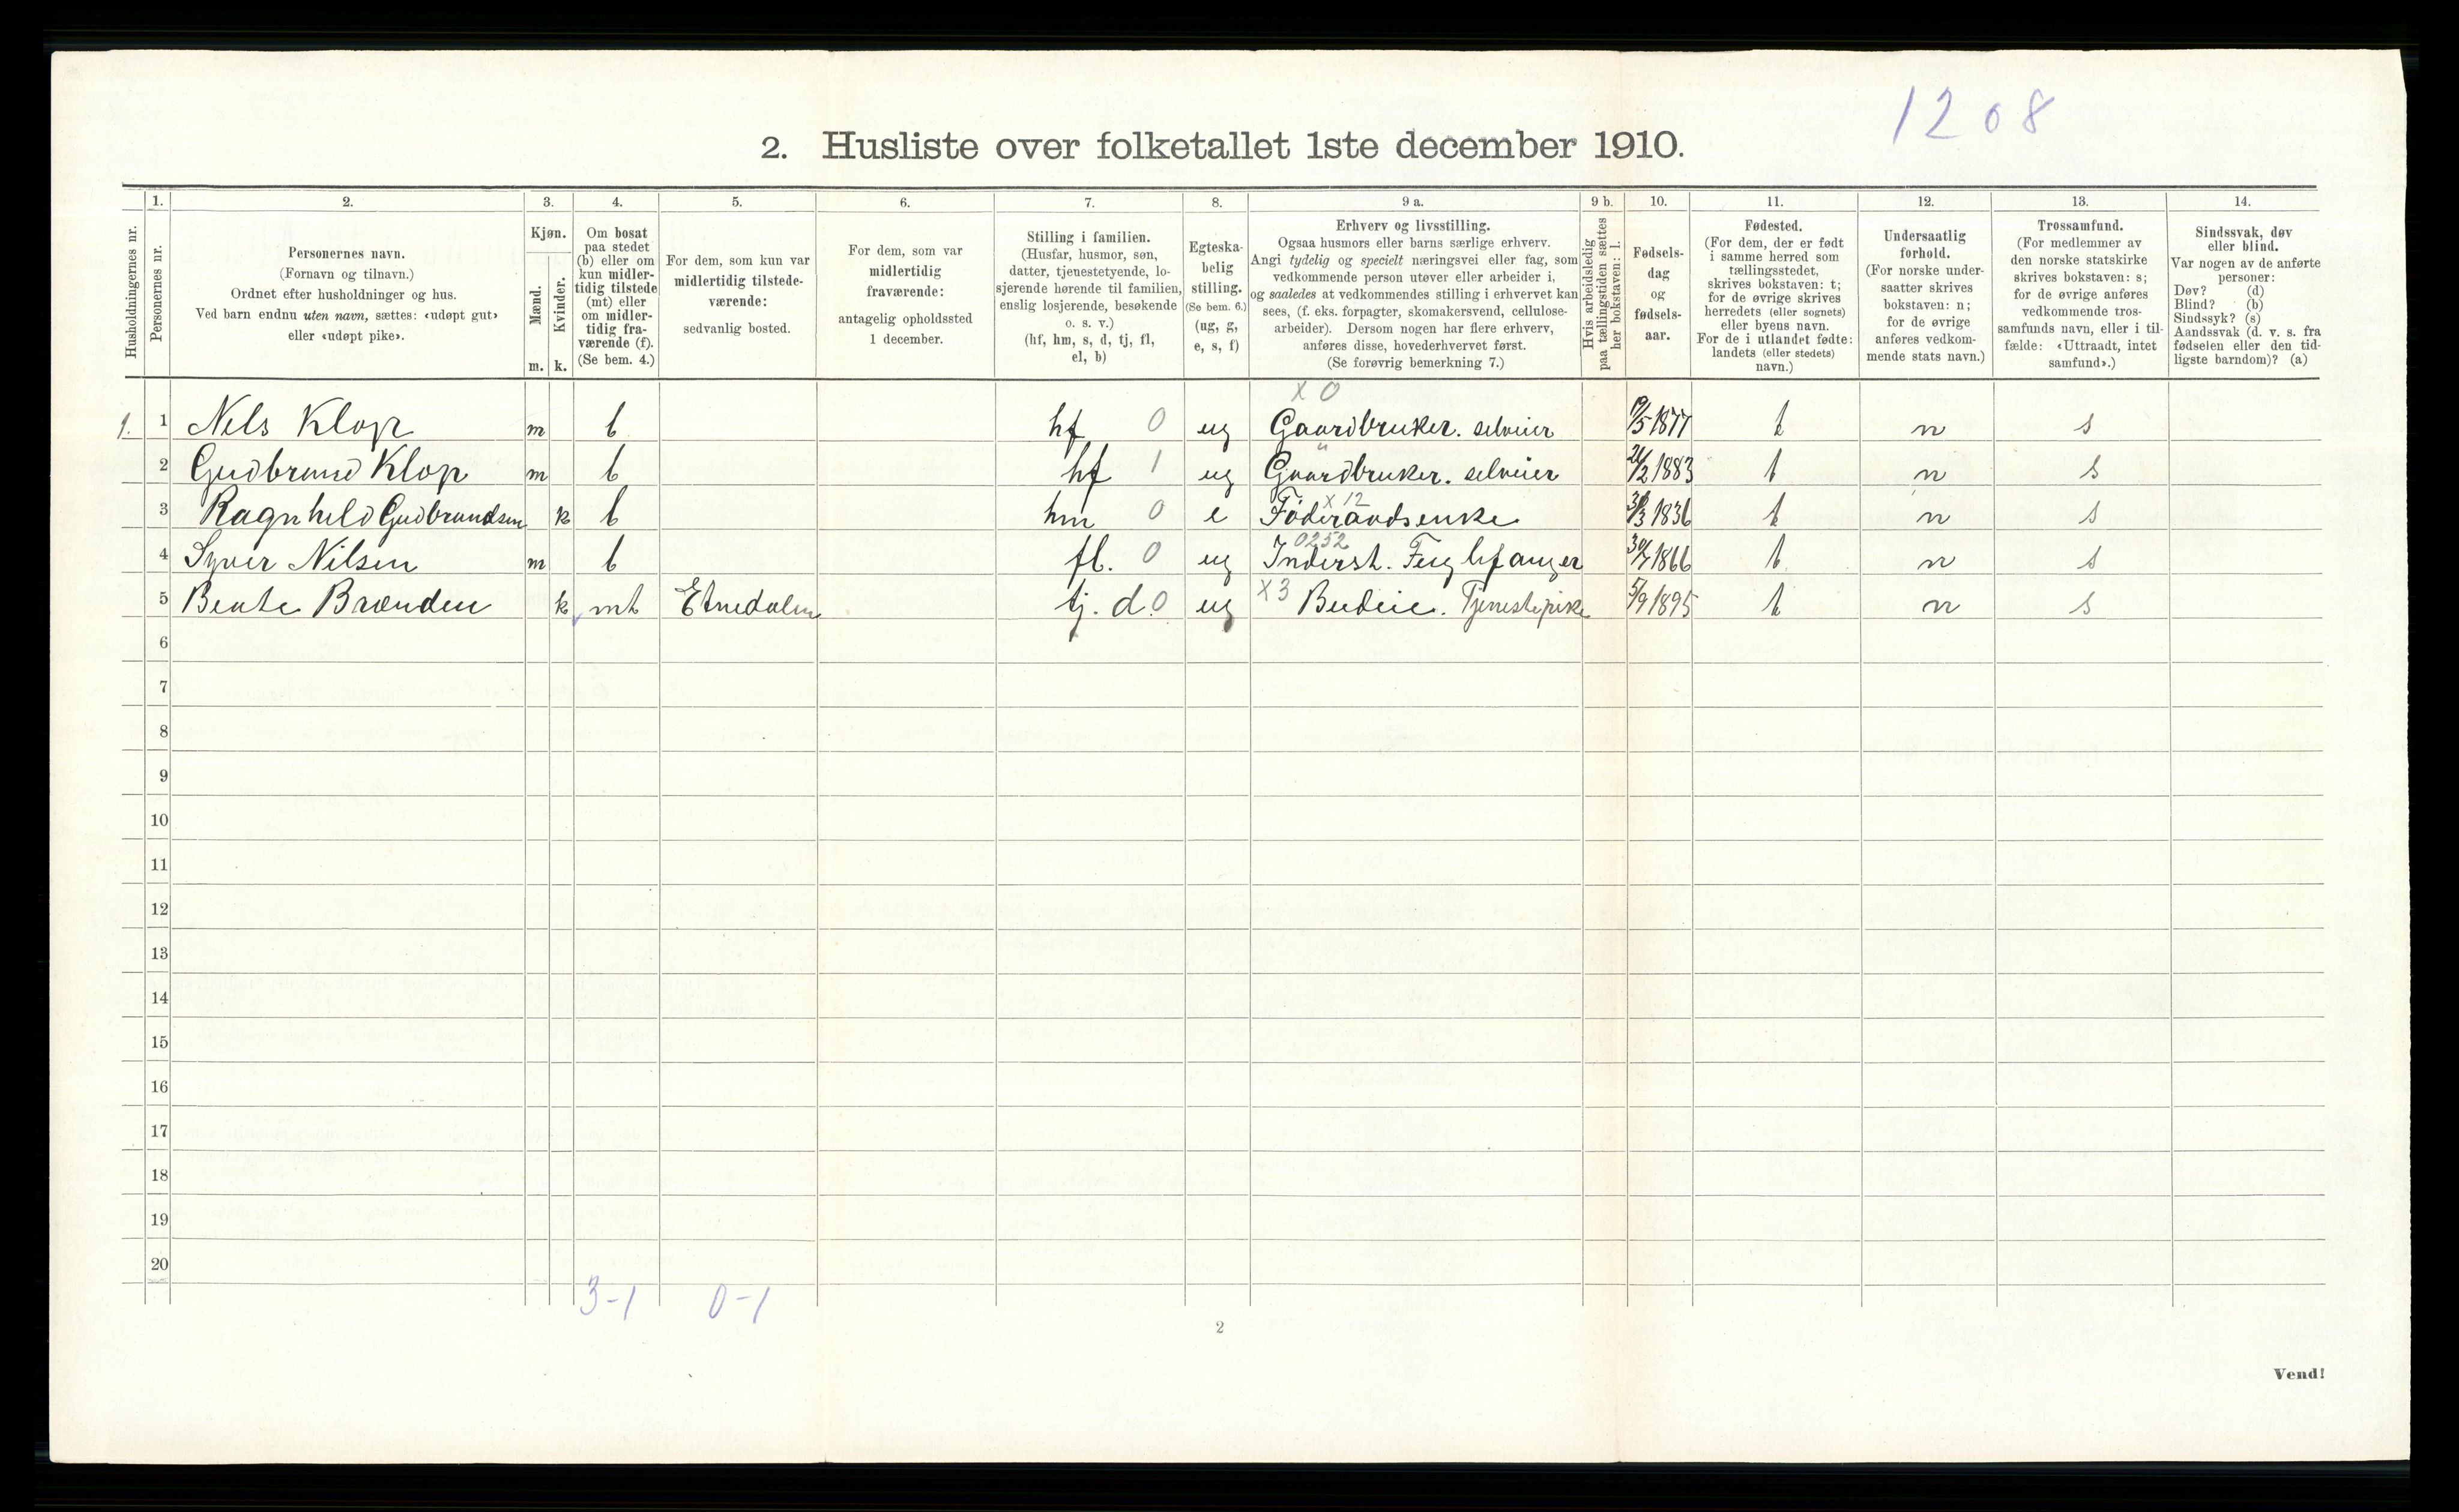 1208
2. Husliste over folketallet 1ste december 1910.
Husholdningernes nr.
1. Personernes nr.
2. Personernes navn.
(Fornavn og tilnavn.)
Ordnet efter husholdninger og hus.
Ved barn endnu uten navn, sættes: «udøpt gut»
eller «udøpt pike».
3. Kjøn.
Mænd. m.
Kvinder. k.
4. Om bosat
paa stedet
(b) eller om
kun midler-
tidig tilstede
(mt) eller
om midler-
tidig fra-
værende (f).
(Se bem. 4.)
5. For dem, som kun var
midlertidig tilstede-
værende:
sedvanlig bosted.
6. For dem, som var
midlertidig
fraværende:
antagelig opholdssted
1 december.
7. Stilling i familien.
(Husfar, husmor, søn,
datter, tjenestetyende, lo-
sjerende hørende til familien,
enslig losjerende, besøkende
o. s. v.)
(hf, hm, s, d, tj, fl,
el, b)
8. Egteska-
belig
stilling.
(Se bem. 6.)
(ug, g,
e, s, f)
9 a. Erhverv og livsstilling.
Ogsaa husmors eller barns særlige erhverv.
Angi tydelig og specielt næringsvei eller fag, som
vedkommende person utøver eller arbeider i,
og saaledes at vedkommendes stilling i erhvervet kan
sees, (f. eks. forpagter, skomakersvend, cellulose-
arbeider). Dersom nogen har flere erhverv,
anføres disse, hovederhvervet først.
(Se forøvrig bemerkning 7.)
9 b. Hvis arbeidsledig
paa tællingstiden sættes
her bokstaven: l.
10. Fødsels-
dag
og
fødsels-
aar.
11. Fødested.
(For dem, der er født
i samme herred som
tællingsstedet,
skrives bokstaven: t;
for de øvrige skrives
herredets (eller sognets)
eller byens navn.
For de i utlandet fødte:
landets (eller stedets)
navn.)
12. Undersaatlig
forhold.
(For norske under-
saatter skrives
bokstaven: n;
for de øvrige
anføres vedkom-
mende stats navn.)
13. Trossamfund.
(For medlemmer av
den norske statskirke
skrives bokstaven: s;
for de øvrige anføres
vedkommende tros-
samfunds navn, eller i til-
fælde: «Uttraadt, intet
samfund».)
14. Sindssvak, døv
eller blind.
Var nogen av de anførte
personer:
Døv? (d)
Blind? (b)
Sindssyk? (s)
Aandssvak (d. v. s. fra
fødselen eller den tid-
ligste barndom)? (a)
x 0
1. 1 Nels Klop m b hf 0 ug Gaardbruker. selveier 1877 t n s
"
2 Gudbrand Klop m b hf 1 ug Gaardbruker. selveier 1883 t n s
x 12
3 Ragnhild Gudbrandsen k b hm 0 e Føderaadsenke 1836 t n s
0252
4 Syver Nilsen m b fl. 0 ug Inderst. Fuglefanger 1866 t n s
5 Beate Brænden k mt Etnedalen tj. d. 0 ug x3 Budeie. Tjenestepike 5/9 1895 t n s
6
7
8
9
10
11
12
13
14
15
16
17
18
19
20
3-1 0-1
2
Vend!